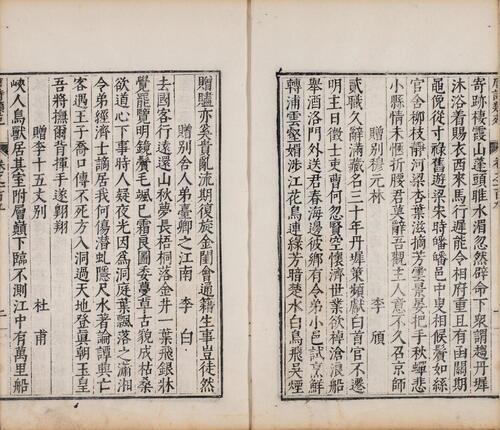 寄跡棲霞山蓬頭雎水湄忽然辟命下衆謂趨丹墀
沐浴着賜衣西來馬行遲能令相府重且有函關期
黽俛從寸祿舊遊梁宋時皤皤邑中叟相候鬢如絲
官舍柳枝靜河梁杏葉滋摘芳雲景晏把手秋蟬悲
小縣情未愜折腰君莫辭吾觀主人意不久召京師
贈別穆元林 李頎
貳職久辭滿藏名三十年丹墀策頻獻白首官不遷
明主日徵士吏曹何忽賢空懷濟世業欲棹滄浪船
舉酒洛門外送君春海邊彼鄉有令弟小邑試烹鮮
轉浦雲壑媚涉江花島連綠芳暗楚水白鳥飛吳煙
贈贐亦奚貴亂流期復旋金閨會通籍生事豈徒然
贈別舍人弟臺卿之江南 李白
去國客行遠還山秋夢長梧桐落金井一葉飛銀牀
覺罷覽明鏡鬢毛颯已霜良圖委蔓草古貌成枯桑
欲道心下事時人疑夜光因爲洞庭葉飄落之瀟湘
令弟經濟士謫居我何傷潛虬隱尺水著論譚興亡
客遇王子喬口傳不死方入洞過天地登眞朝玉皇
吾將撫爾背揮手遂翺翔
贈李十五丈別 杜甫
峽人鳥獸居其室附層巔下臨不測江中有萬里船